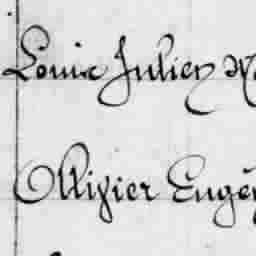 Louis Julien
Ollivier Eugè